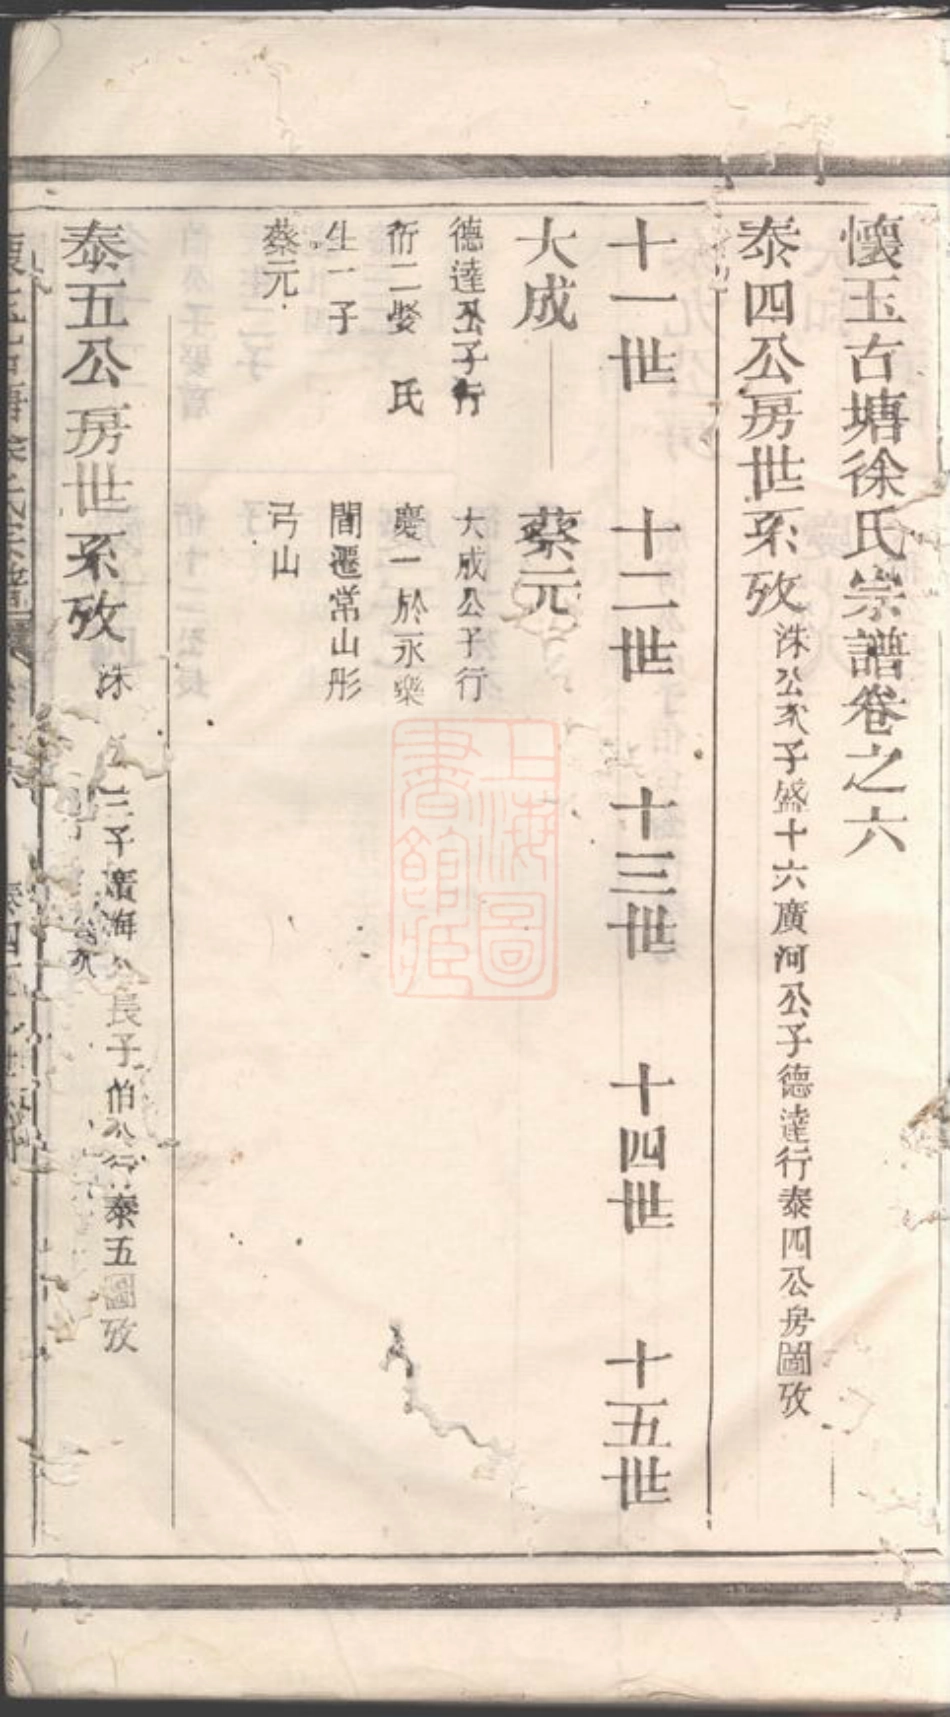 懷玉古塘徐氏宗譜卷之六
泰四公房世系攷 洙公次子盛十六廣河公子德達行泰四公房圖攷
十一世 十二世 十三世 十四世 十五世
大成 蔡元
德達公子行
衍二娶 氏
生一子
蔡元
大成公子行
慶一於永樂
間遷常山彤
弓山
泰五公房世系攷 洙 二子廣海公長子伯公行泰五圖攷
上海圖書館藏